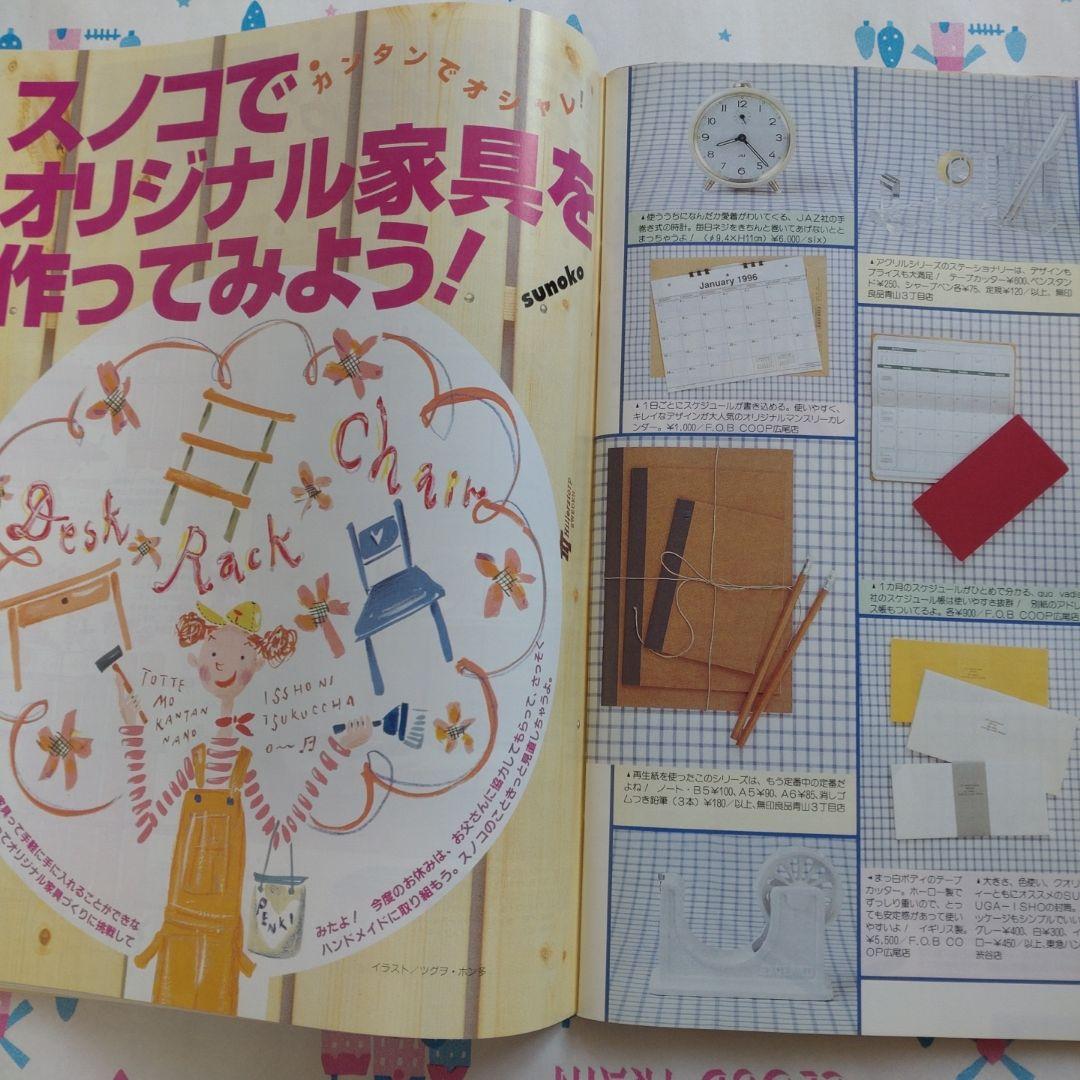 カンタンでオシャレ!
スノコで
オリジナル家具を
作ってみよう!
sunoko
Chair
Desk
Rack
TOTTE
MO
KANTAN
NANO
ISSHONI
TSUKUCCHA
O〜♬
PENKI
家具って手軽に手に入れることができな
ってオリジナル家具づくりに挑戦して
みたよ! 今度のお休みは、お父さんに協力してもらって、さっそく
ハンドメイドに取り組もう。スノコのこときっと見直しちゃうよ。
イラスト/ツグヲ・ホン多
SWEDEN
▲使ううちになんだか愛着がわいてくる、JAZ社の手
巻き式の時計。毎日ネジをきちんと巻いてあげないとと
まっちゃうよ! (φ9.4×H11cm) ¥6,000/six)
January 1996
▲1日ごとにスケジュールが書き込める。使いやすく、
キレイなデザインが大人気のオリジナルマンスリーカレ
ンダー。¥1,000/F.O.B COOP広尾店
▲再生紙を使ったこのシリーズは、もう定番中の定番だ
よね! ノート・B5¥100、A5¥90、A6¥85、消しゴ
ムつき鉛筆(3本)¥180/以上、無印良品青山3丁目店
▲アクリルシリーズのステーショナリーは、デザインも
プライスも大満足! テープカッター¥600、ペンスタン
ド¥250、シャープペン各¥75、定規¥120/以上、無印
良品青山3丁目店
▲1カ月のスケジュールがひとめで分かる、quo vadis
社のスケジュール帳は使いやすさ抜群! 別紙のアドレ
ス帳もついてるよ。各¥900/F.O.B COOP広尾店
◀まっ白ボディのテープ
カッター。ホーロー製で
ずっしり重いので、とっ
ても安定感があって使い
やすいよ! イギリス製。
¥5,500/F.O.B CO
OP広尾店
▲大きさ、色使い、クオリ
ィーともにオススメのSU
UGA-ISHOの封筒。
ッケージもシンプルでいい
グレー¥400、白¥300、イ
ロー¥450/以上、東急ハン
渋谷店